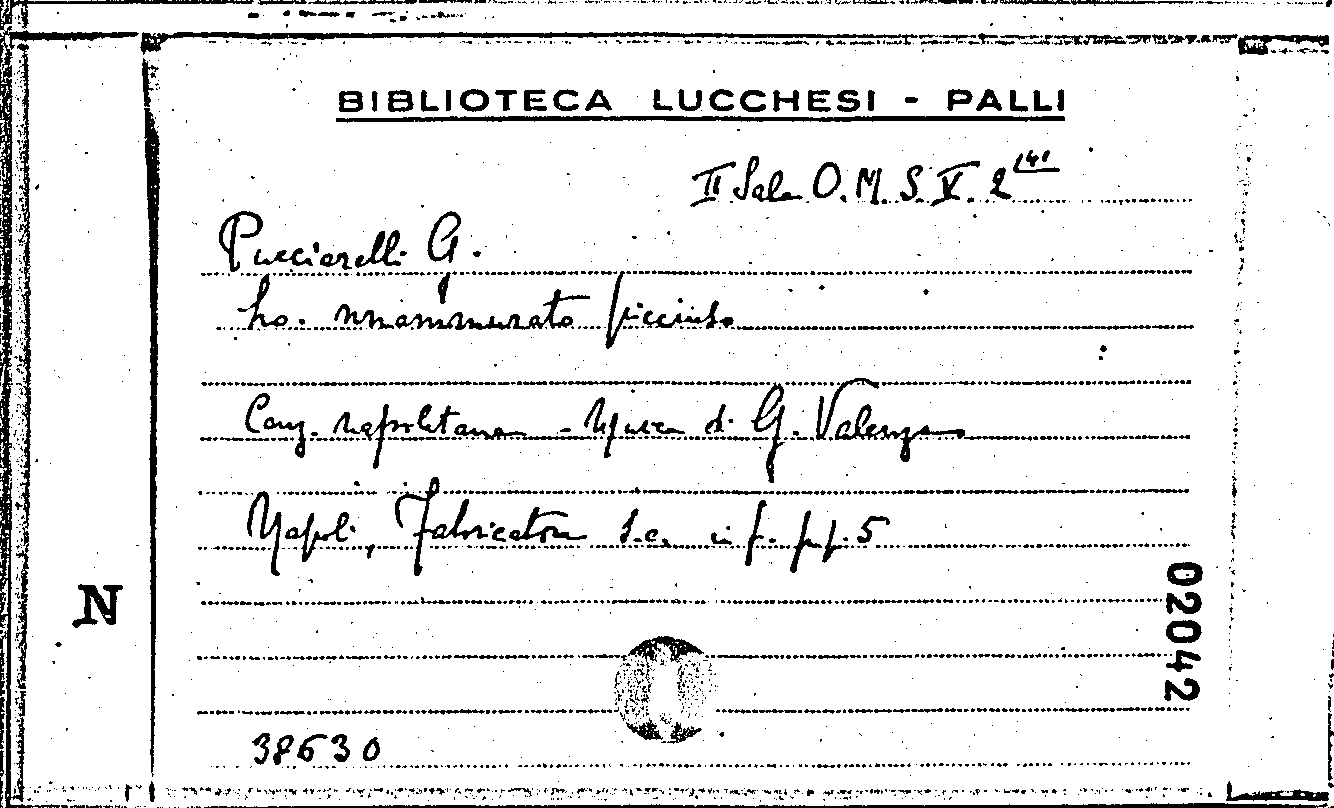 BIBLIOTECA LUCCHESI - PALLI
II Sala O. M. S. V. 2 141
Pucciarelli G.
Lo. nnammurato picciuso
Canz. napoletana - Musica di G. Valenza
Napoli, Fabricatore s.a. in f. pp. 5
N
02042
38630